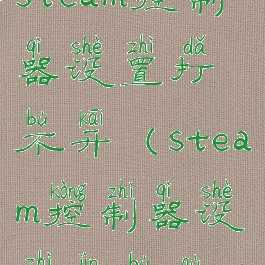 steam控制
qì shè zhì dǎ
器设置打
bù kāi
不开（stea
kòng zhì qì shè
m控制器设
zhì jìn bù qù